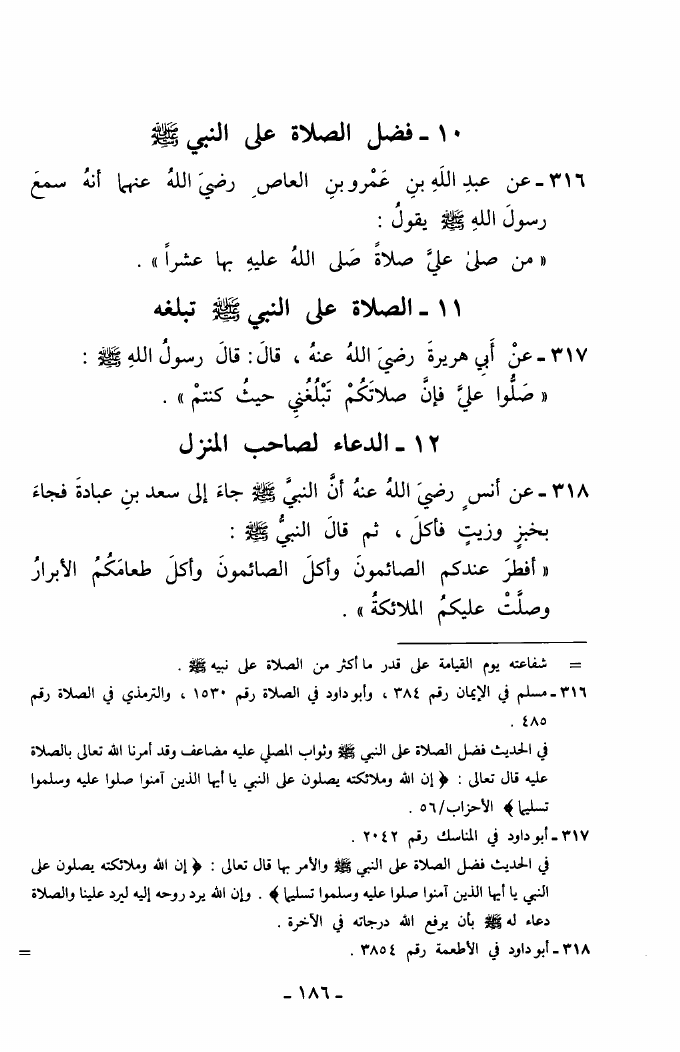 ١٠ ـ فضل الصلاة على النبي ﷺ
٣١٦ ـ عن عبدِ اللَهِ بنِ عَمْرو بنِ العاصِ رضيَ اللهُ عنهما أنهُ سمعَ
رسولَ اللهِ ﷺ يقولُ :
« من صلىٰ عليَّ صلاةً صَلى اللهُ عليهِ بها عشراً » .
١١ ـ الصلاة على النبي ﷺ تبلغه
٣١٧ ـ عنْ أَبي هريرةَ رضيَ اللهُ عنهُ ، قالَ : قالَ رسولُ اللهِ ﷺ :
« صَلُّوا عليَّ فإنَّ صلاتَكُمْ تَبْلُغُني حيثُ كنتمْ » .
١٢ ـ الدعاء لصاحب المنزل
٣١٨ ـ عن أنسٍ رضيَ اللهُ عنهُ أنَّ النبيَّ ﷺ جاءَ إلى سعد بنِ عبادةَ فجاءَ
بخبزٍ وزيتٍ فأكلَ ، ثم قالَ النبيُّ ﷺ :
« أفطرَ عندكم الصائمونَ وأكلَ الصائمونَ وأكلَ طعامَكُمُ الأبرارُ
وصلَّتْ عليكمُ الملائكةُ » .
= شفاعته يوم القيامة على قدر ما أكثر من الصلاة على نبيه ﷺ .
٣١٦ ـ مسلم في الإيمان رقم ٣٨٤ ، وأبو داود في الصلاة رقم ١٥٣٠ ، والترمذي في الصلاة رقم
٤٨٥ .
في الحديث فضل الصلاة على النبي ﷺ وثواب المصلي عليه مضاعف وقد أمرنا الله تعالى بالصلاة
عليه قال تعالى : ﴿ إن الله وملائكته يصلون على النبي يا أيها الذين آمنوا صلوا عليه وسلموا
تسليما ﴾ الأحزاب/٥٦ .
٣١٧ ـ أبو داود في المناسك رقم ٢٠٤٢ .
في الحديث فضل الصلاة على النبي ﷺ والأمر بها قال تعالى : ﴿ إن الله وملائكته يصلون على
النبي يا أيها الذين آمنوا صلوا عليه وسلموا تسليما ﴾ . وإن الله يرد روحه إليه ليرد علينا والصلاة
دعاء له ﷺ بأن يرفع الله درجاته في الآخرة .
٣١٨ ـ أبو داود في الأطعمة رقم ٣٨٥٤ . =
ـ ١٨٦ ـ